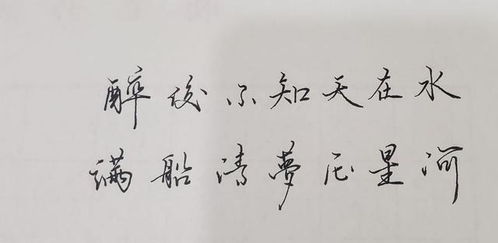 醉後不知天在水
满船清夢压星河